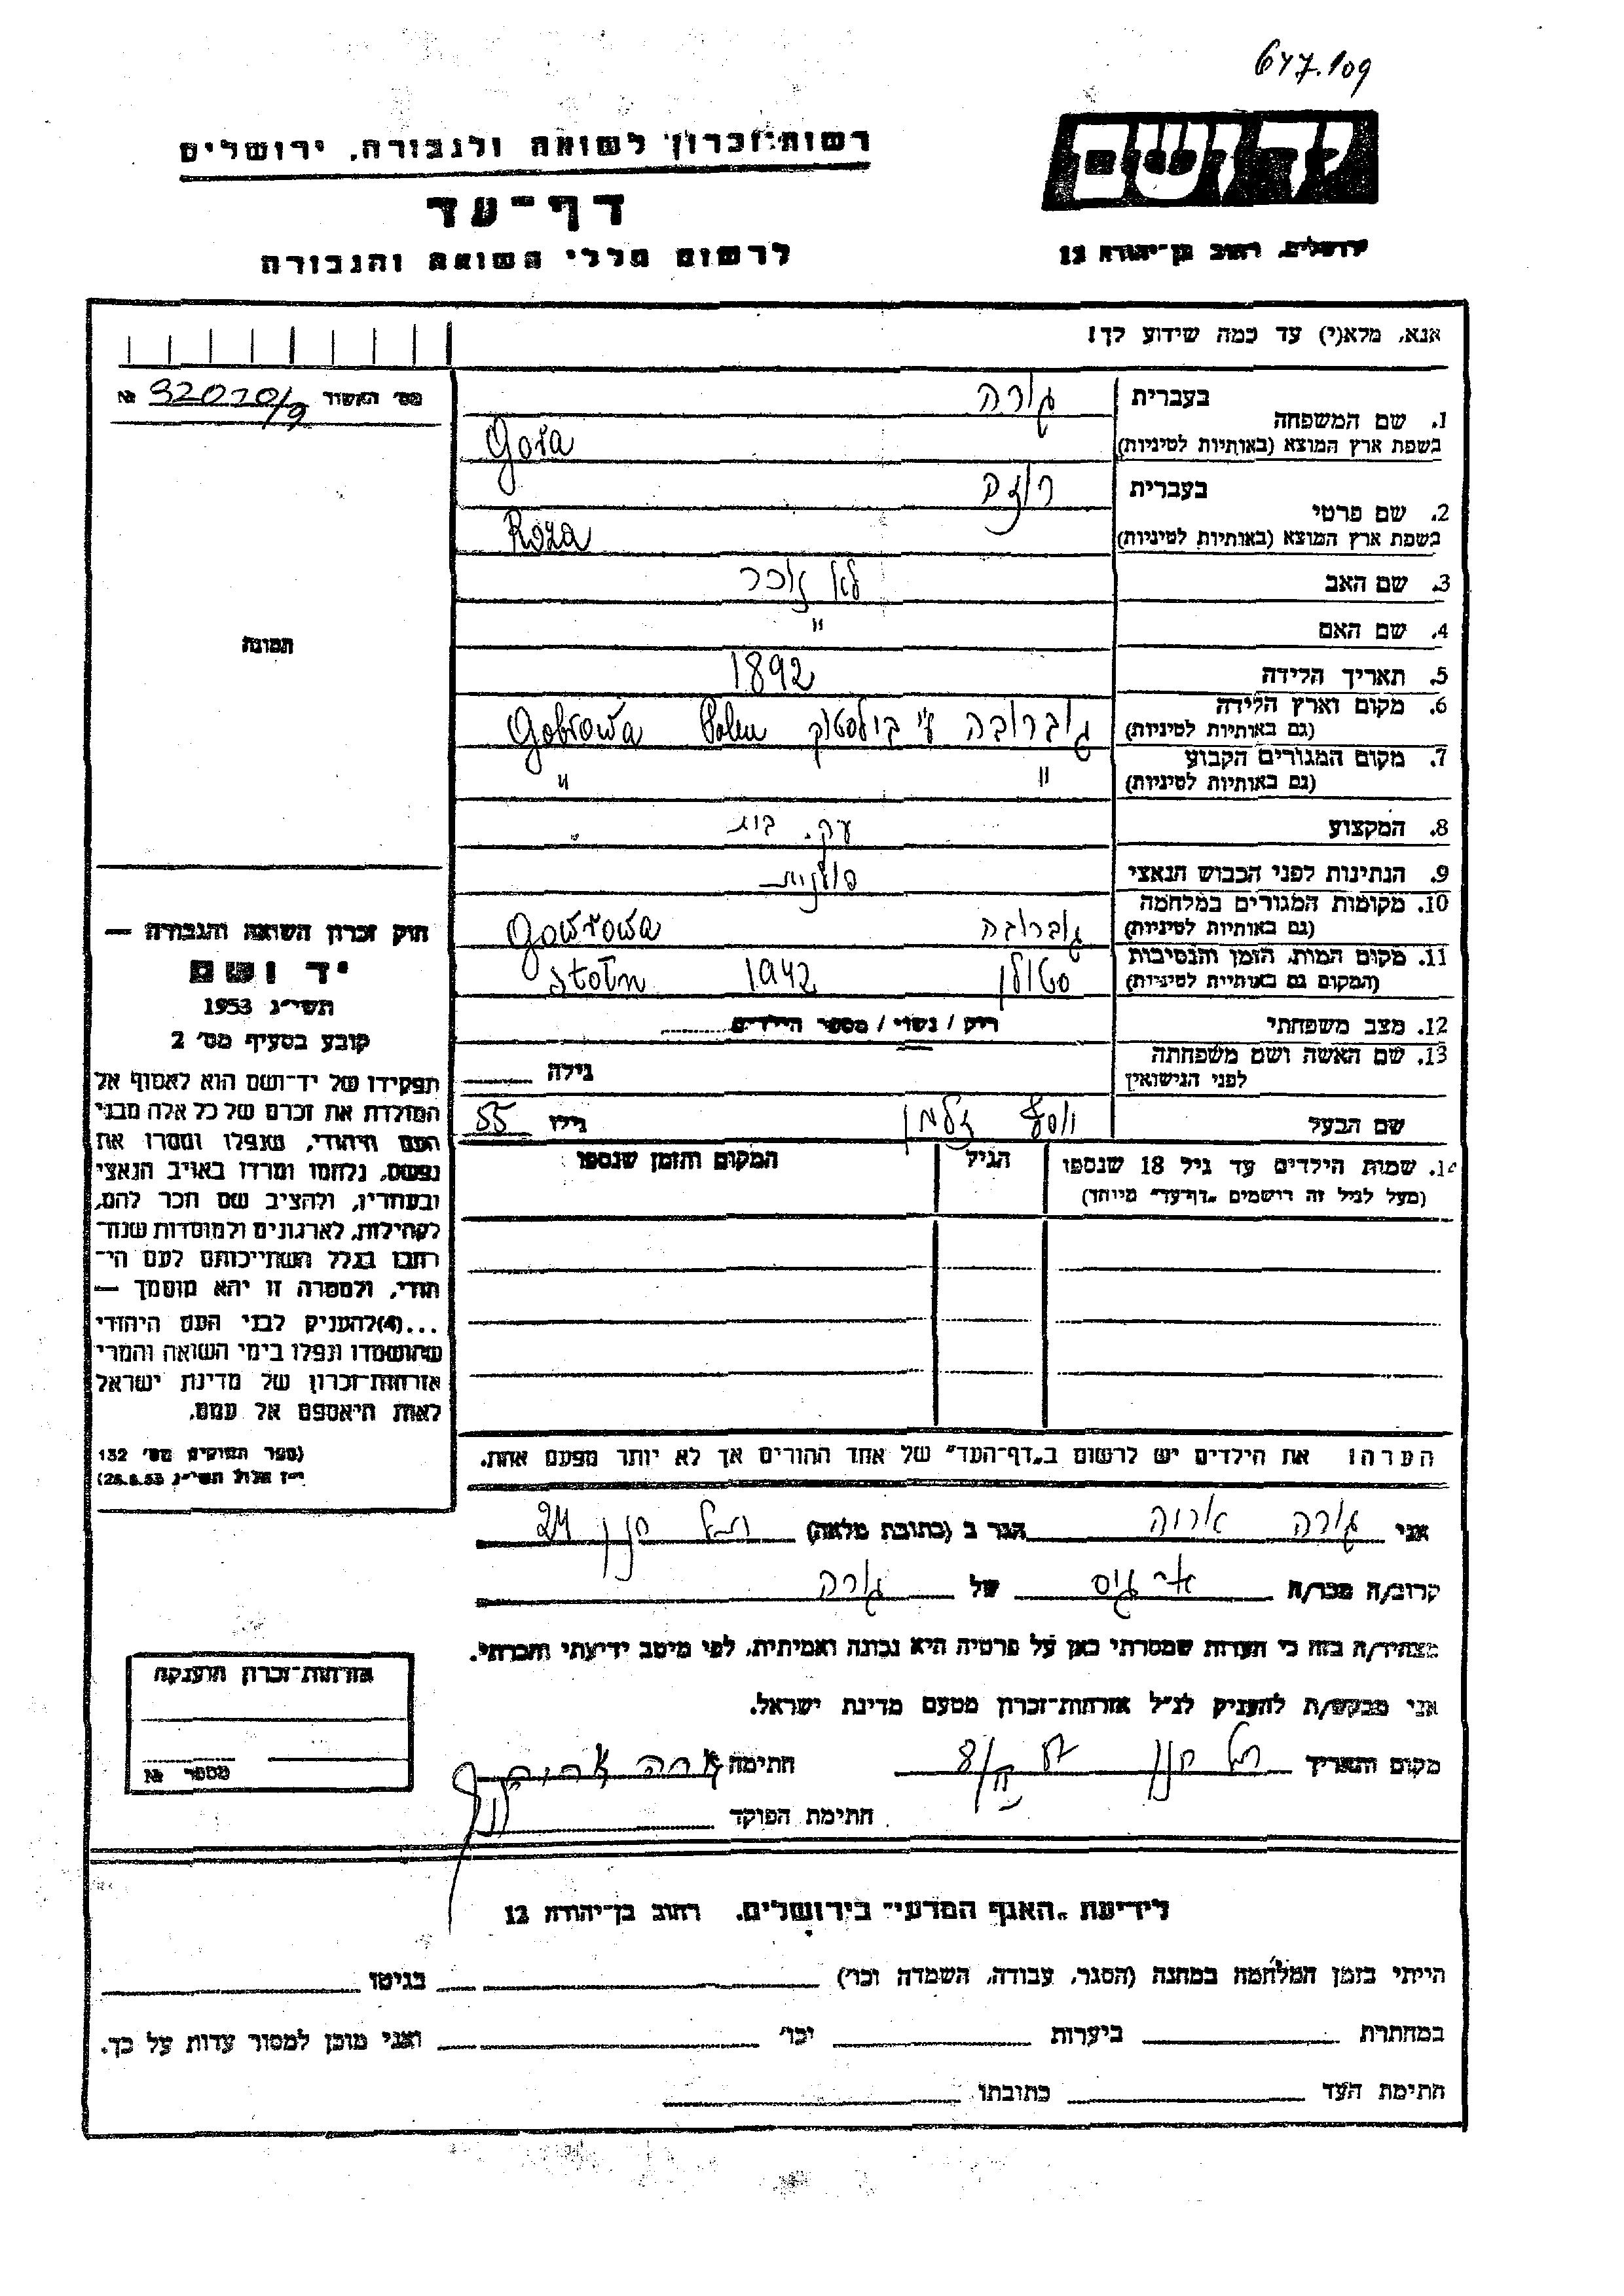 647.109
רשות־זכרון לשואה ולגבורה, ירושלים
יד ושם
דף־עד
לרשום חללי השואה והגבורה
ירושלים, רחוב בן־יהודה 12
אנא, מלא(י) עד כמה שידוע לך!
מס׳ האשור 32070/9 №
בעברית גורה
1. שם המשפחה
בשפת ארץ המוצא (באותיות לטיניות) Gora
בעברית רוזה
2. שם פרטי
בשפת ארץ המוצא (באותיות לטיניות) Roza
3. שם האב לא זוכר
4. שם האם "
תמונה
5. תאריך הלידה 1892
6. מקום וארץ הלידה
(גם באותיות לטיניות) גוברובה ע"י Polen Gobrowa
7. מקום המגורים הקבוע
(גם באותיות לטיניות) " "
8. המקצוע עק. בית
9. הנתינות לפני הכבוש הנאצי פולנית
10. מקומות המגורים במלחמה
(גם באותיות לטיניות) גוברובה Gowrowa
11. מקום המות, הזמן והנסיבות
(המקום גם באותיות לטיניות) סטולין 1942 Stolin
12. מצב משפחתי רוק / נשוי / מספר הילדים
13. שם האשה ושם משפחתה
לפני הנישואין גילה
שם הבעל זלמן גילו 55
14. שמות הילדים עד גיל 18 שנספו הגיל המקום והזמן שנספו
(מעל לגיל זה רושמים "דף־עד" מיוחד)
חוק זכרון השואה והגבורה —
יד ושם
תשי״ג 1953
קובע בסעיף מס׳ 2
תפקידו של יד־ושם הוא לאסוף אל
המולדת את זכרם של כל אלה מבני
העם היהודי, שנפלו ומסרו את
נפשם, נלחמו ומרדו באויב הנאצי
ובעוזריו, ולהציב שם וזכר להם,
לקהילות, לארגונים ולמוסדות שנח־
רבו בגלל השתייכותם לעם הי־
הודי, ולמטרה זו יהא מוסמך —
...(4)להעניק לבני העם היהודי
שהושמדו ונפלו בימי השואה והמרי
אזרחות־זכרון של מדינת ישראל
לאות היאספם אל עמם.
(ספר החוקים מס׳ 132
י״ז אלול תשי״ג (28.8.53)
הערה: את הילדים יש לרשום ב"דף־העד" של אחד ההורים אך לא יותר מפעם אחת.
אני גורה אריה הגר ב (כתובת מלאה) רמל חנן 24
קרוב/ה מכר/ה של גורה
מצהיר/ה בזה כי העדות שמסרתי כאן על פרטיה היא נכונה ואמיתית, לפי מיטב ידיעתי והכרתי.
אני מבקש/ת להעניק לנ״ל אזרחות־זכרון מטעם מדינת ישראל.
מקום והתאריך חתימה
חתימת הפוקד
אזרחות־זכרון הוענקה
מספר №
לידיעת "האגף המדעי" בירושלים, רחוב בן־יהודה 12
הייתי בזמן המלחמה במחנה (הסגר, עבודה, השמדה וכו׳) בגיטו
במחתרת ביערות וכו׳ ואני מוכן למסור עדות על כך.
חתימת העד כתובתו